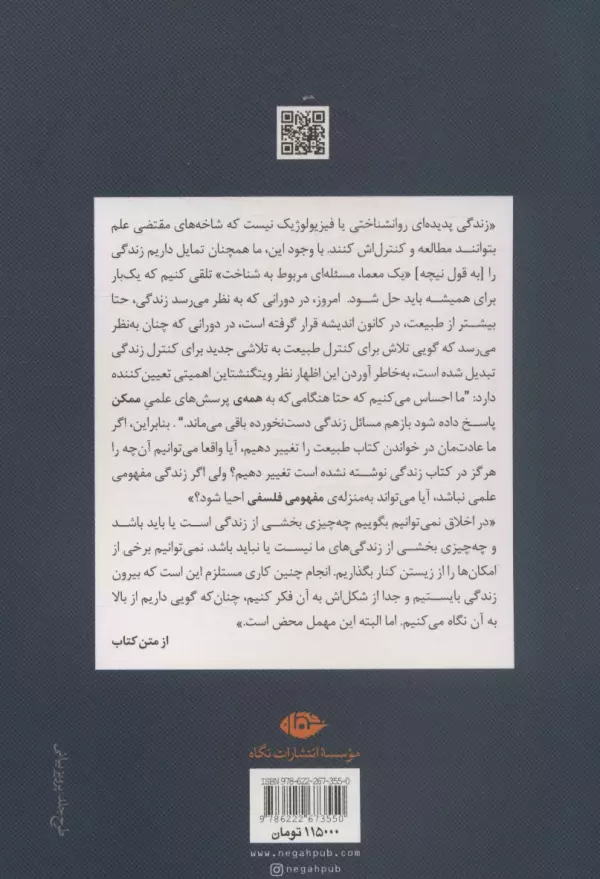 «زندگی پدیده‌ای روانشناختی یا فیزیولوژیک نیست که شاخه‌های مقتضی علم
بتوانند مطالعه و کنترل‌اش کنند. با وجود این، ما همچنان تمایل داریم زندگی
را [به قول نیچه] «یک معما، مسئله‌ای مربوط به شناخت» تلقی کنیم که یک‌بار
برای همیشه باید حل شود. امروز، در دورانی که به نظر می‌رسد زندگی، حتا
بیشتر از طبیعت، در کانون اندیشه قرار گرفته است، در دورانی که چنان به‌نظر
می‌رسد که گویی تلاش برای کنترل طبیعت به تلاشی جدید برای کنترل زندگی
تبدیل شده است، به‌خاطر آوردن این اظهار نظر ویتگنشتاین اهمیتی تعیین‌کننده
دارد: "ما احساس می‌کنیم که حتا هنگامی‌که به همه‌ی پرسش‌های علمیِ ممکن
پاسخ داده شود بازهم مسائل زندگی دست‌نخورده باقی می‌ماند.". بنابراین، اگر
ما عادت‌مان در خواندن کتاب طبیعت را تغییر دهیم، آیا واقعا می‌توانیم آن‌چه را
هرگز در کتاب زندگی نوشته نشده است تغییر دهیم؟ ولی اگر زندگی مفهومی
علمی نباشد، آیا می‌تواند به‌منزله‌ی مفهومی فلسفی احیا شود؟»
«در اخلاق نمی‌توانیم بگوییم چه‌چیزی بخشی از زندگی است یا باید باشد
و چه‌چیزی بخشی از زندگی‌های ما نیست یا نباید باشد. نمی‌توانیم برخی از
امکان‌ها را از زیستن کنار بگذاریم. انجام چنین کاری مستلزم این است که بیرون
زندگی بایستیم و جدا از شکل‌اش به آن فکر کنیم، چنان‌که گویی داریم از بالا
به آن نگاه می‌کنیم. اما البته این مهمل محض است.»
از متن کتاب
مؤسسهٔ انتشارات نگاه
ISBN 978-622-267-355-0
9 786222 673550
۱۱۵۰۰۰ تومان
www.negahpub.com
negahpub
طرح جلد: پرویز بیانی